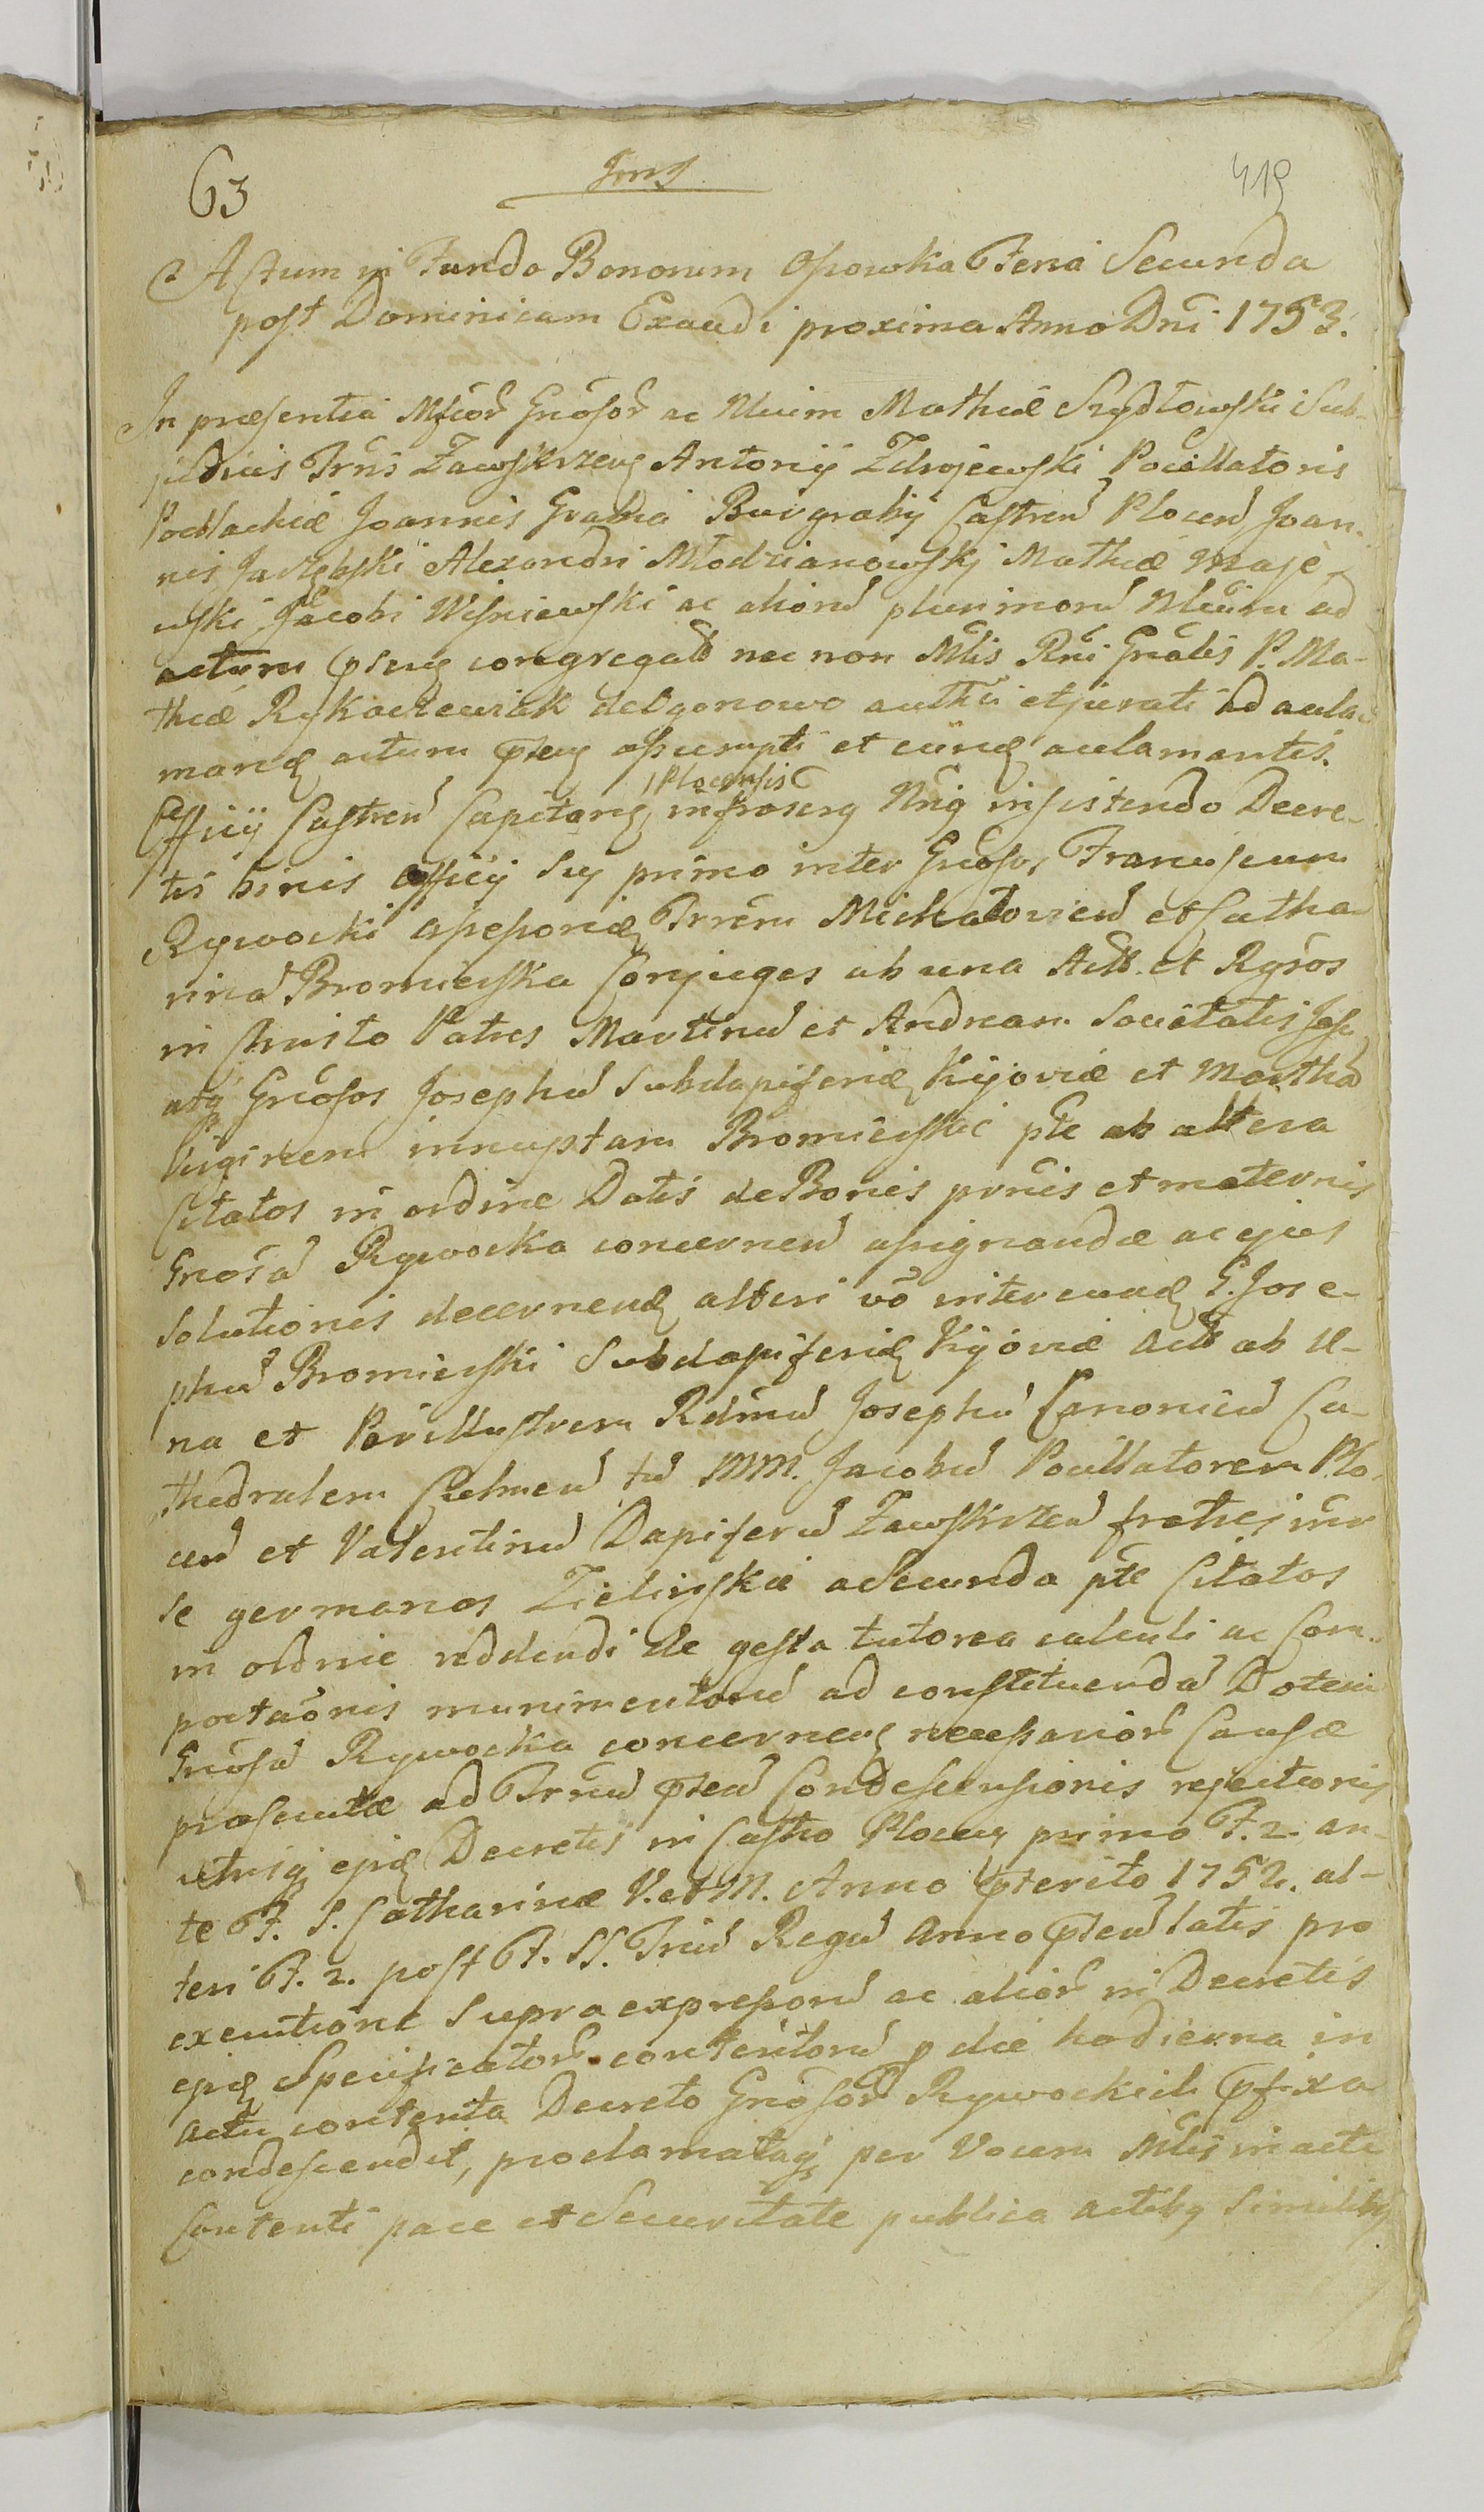 63
419
Actum in Fundo Bonorum Osowka Feria Secunda
post Dominicam Exaudi proxima Anno Dni 1753.
In præsentia Mfcor Gnosor ac Nbium Mathiæ Szydłowski Sub-
judicis Trris Zawskrzen Antonij Zdrojewski Pocillatoris
Podlachiæ Joannis Grabia Burgrabij Castren Plocen Joan-
nis Jastębski Alexandri Młodzianowskj Mathiæ Maje-
wski Jacobi Wisniewski ac aliorum plurimorum Nbium ad
actum pntem congregat nec non Mtlis Rni Gnalis P. Ma-
thiæ Rykaczewiak de Ogonowo authci et jurati ad acla-
mand actum pntem assumpti et eund aclamantis.
Officij Castren Capitan Plocensis infrascrip insistendo Decre-
tis binis officij sui primo inter Gnosos Franciscum
Rywocki Assessorid Trrem Michałovien et Catha-
rina Bromierska Conjuges ab una Act. et Rgiosos
in Christo Patres Martinum et Andream Societatis Jesu
atq Gnosos Josephum Subdapiferid Kijoviæ et Martha
Virginem innuptam Bromierskie pte ab altera
Citatos in ordine Dotis de Bonis prnis et maternis
Gnosa Rywocka concernen assignandæ ac ejus
Solutionis decernend alteri vo inter eund G. Jose-
phum Bromierski Subdapiferid Kijoviæ Act ab u-
na et Perillustrem Rdmum Josephum Canonicum Ca-
thedralem Culmen tum MM. Jacobum Pocillatorem Plo-
cen et Valentinum Dapiferum Zawskrzen fratres inter
se germanos Zielinskie a Secunda pte Citatos
in ordine reddendi de gesta tutorea calculi ac Com-
portaonis munimentorum ad constituenda Dotem
Gnosa Rywocka concernen necessarior Causæ
prosecutæ ad Trrum pntem Condescensionis rejectionis
utriusq ejusd Decretis in Castro Plocen primo F. 2. an-
te F. S. Catharinæ V. et M. Anno pterito 1752. al-
teri F. 2. post F. SS. Trium Regum Anno pnten latis pro
executione supra expressorum ac alior in Decretis
ejusd specificator contentorum p die hodierna in
actu contenta Decreto Gnosor Rywockich pfixa
condescendit, proclamataq per Vocem Mtlis in actu
Contenti pace et Securitate publica actibq similibq